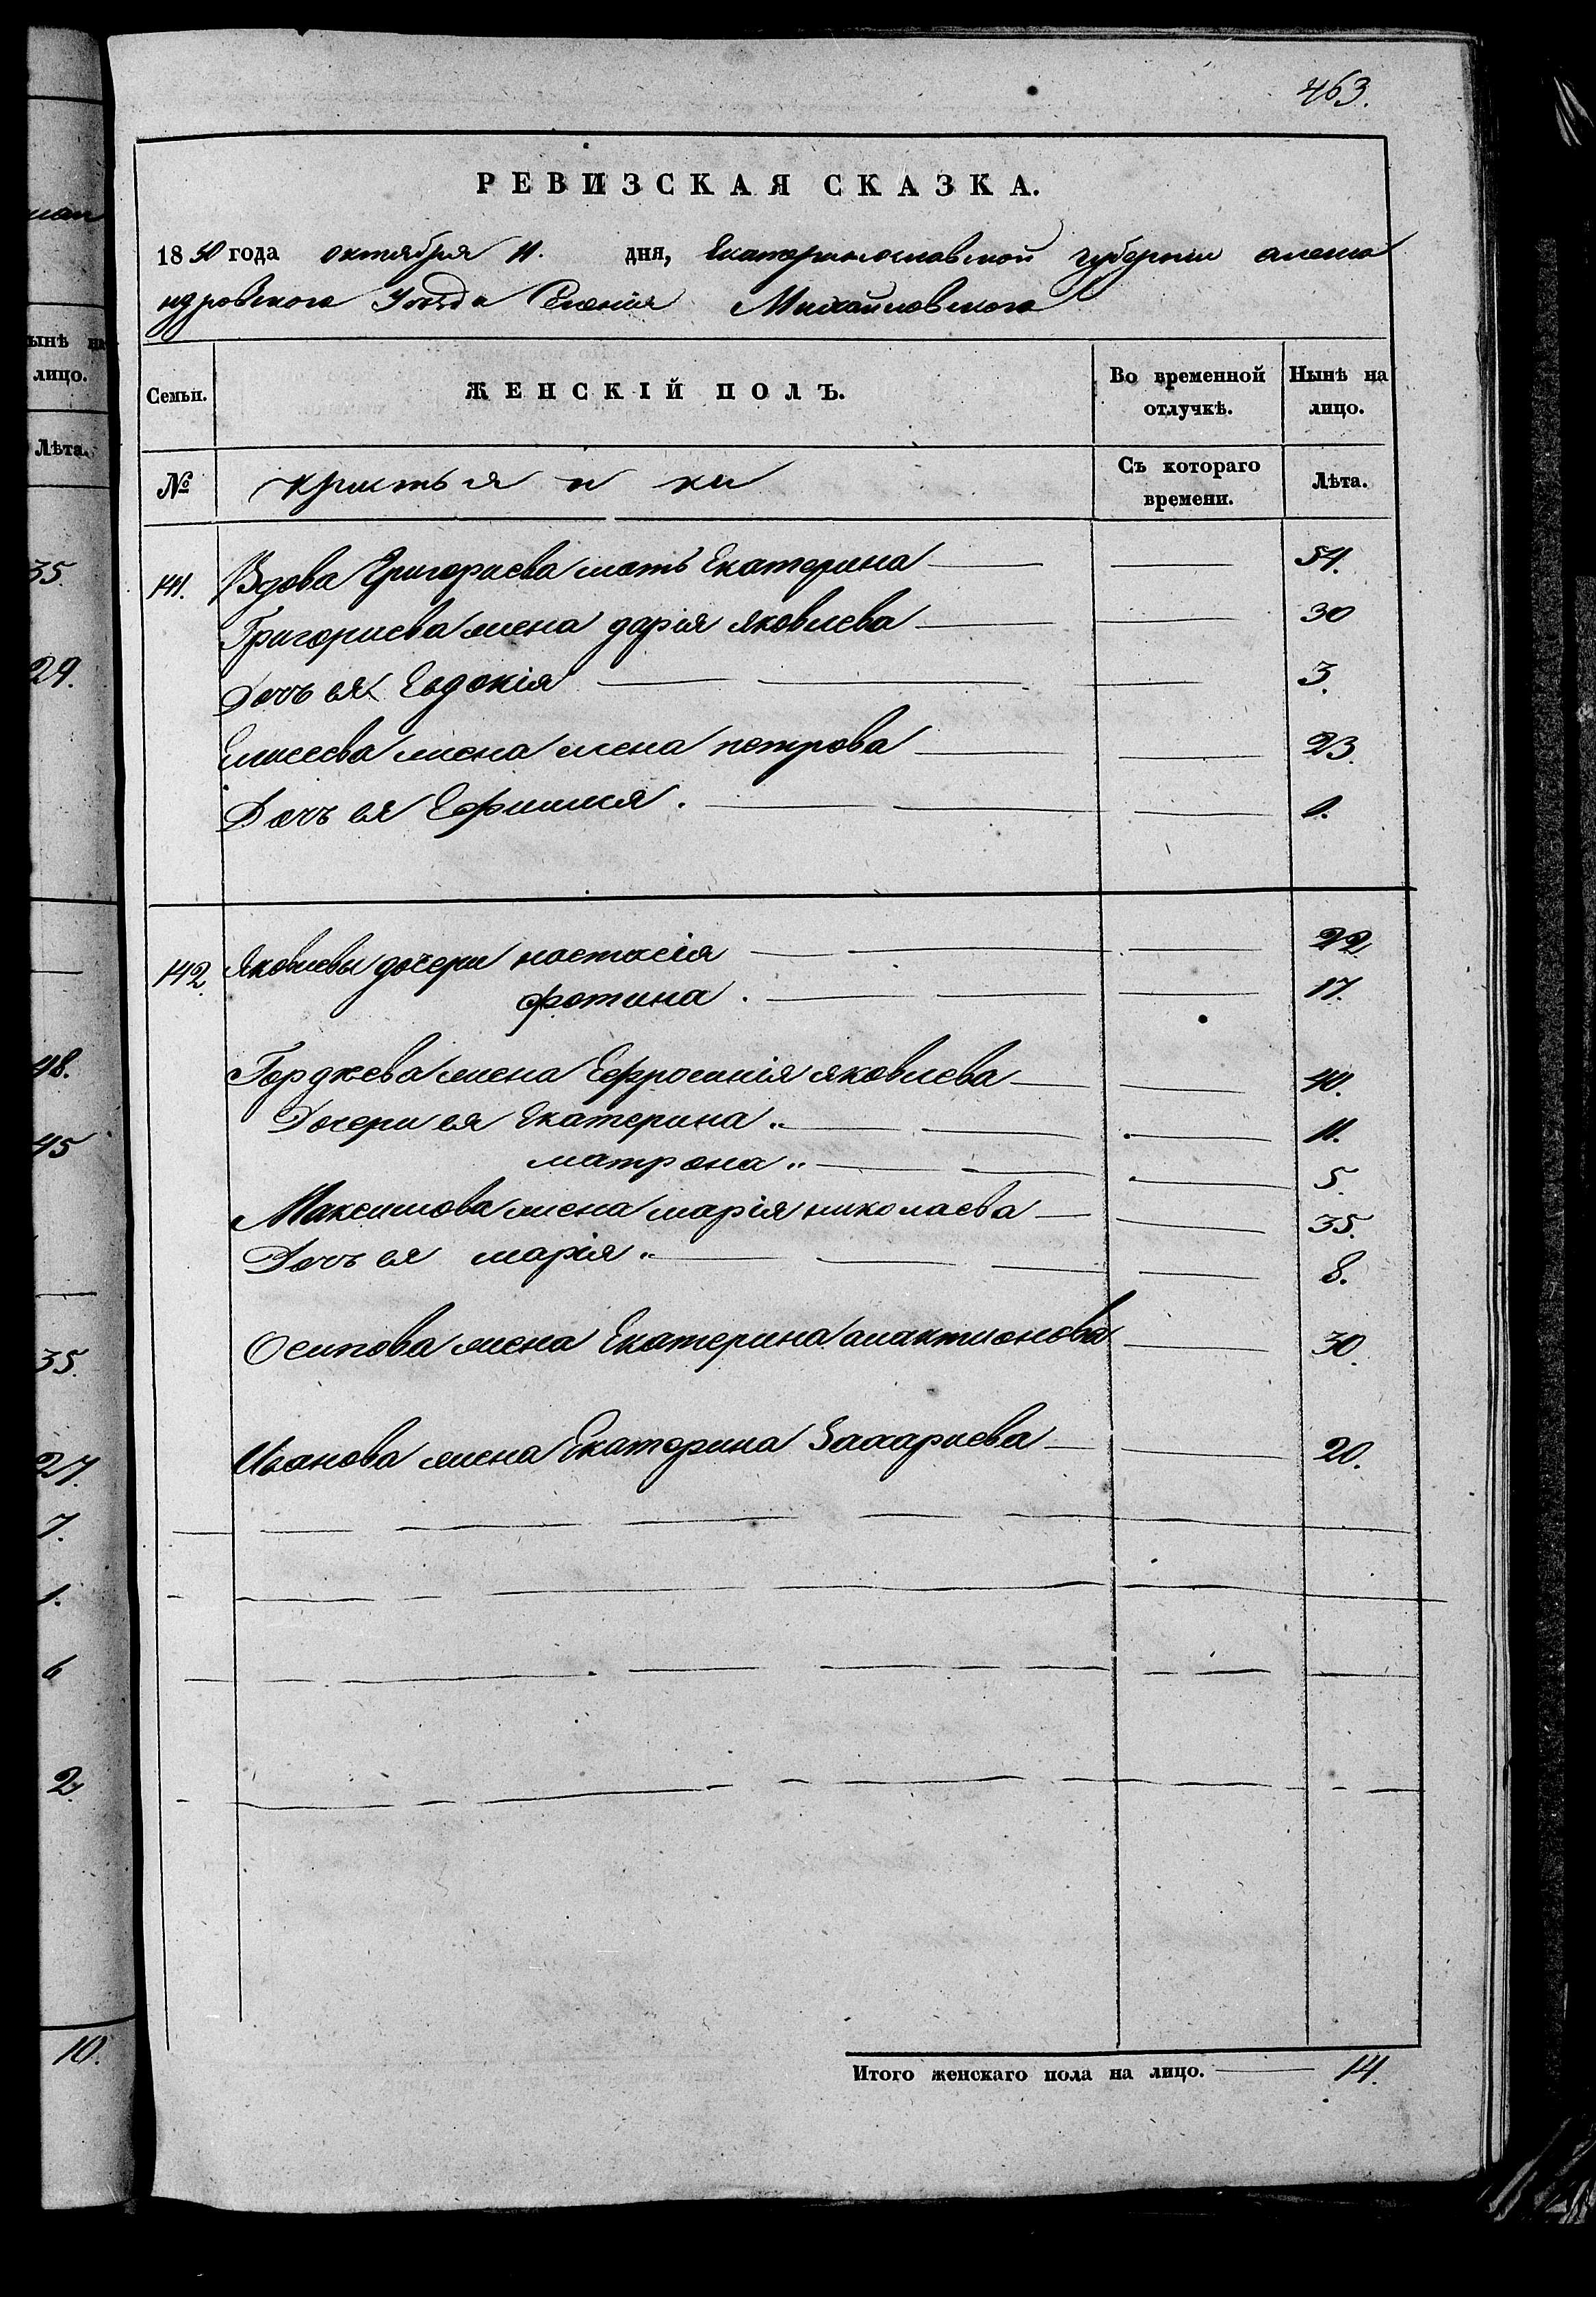 463.
РЕВИЗСКАЯ СКАЗКА.
1850 года октября 11. дня, Екатеринославской губернии алекса
ндровского Уезда Селенія Михайловского
Семьи. ЖЕНСКІЙ ПОЛЪ. Во временной отлучкѣ. Нынѣ на лицо.
№ кристьянки Съ котораго времени. Лѣта.
141. Вдова Григориева мать Екатерина 54.
Григориева жена дарія яковлева 30
Дочь ея Евдокія 3.
Елисеева жена петрова 23.
Дочь ея Ефимия.
142. Яковлевы дочери настасія 22
фотина. 17.
Гордеева жена Ефросинія яковлева 40.
Дочери ея Екатерина 11.
матрона 5.
Максимова жена марія николаева 35.
Дочь ея марія 8.
Осипова жена Екатерина алактионова 30.
Иванова жена Екатерина Захариева 20.
Итого женскаго пола на лицо. 14.
ынѣ на
лицо.
Лѣта.
35.
29.
48.
45
35.
27.
7.
1.
6
2.
10.